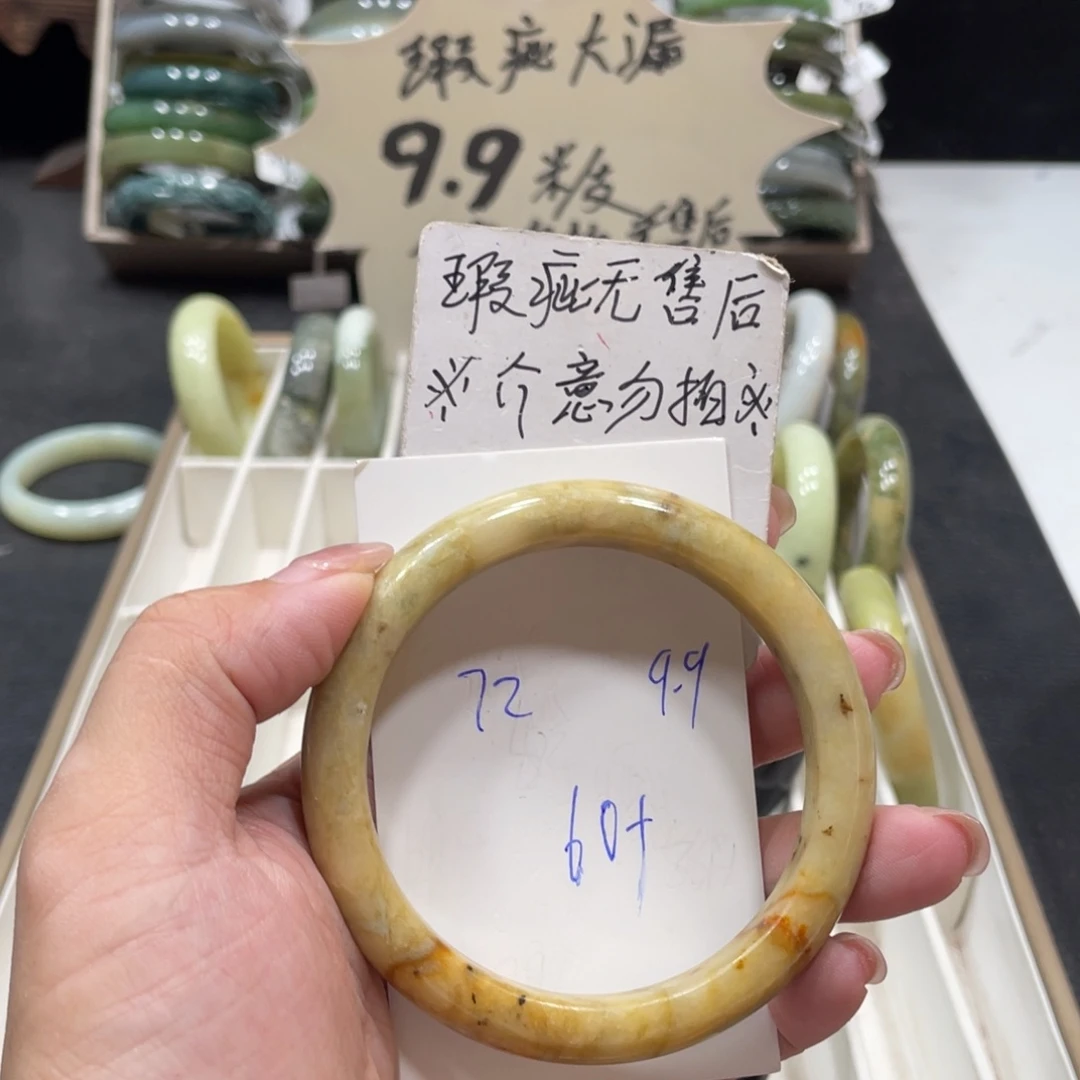 瑕疵大漏
9.9 米友
售后
瑕疵无售后
※介意勿拍※
72 9.9
60+